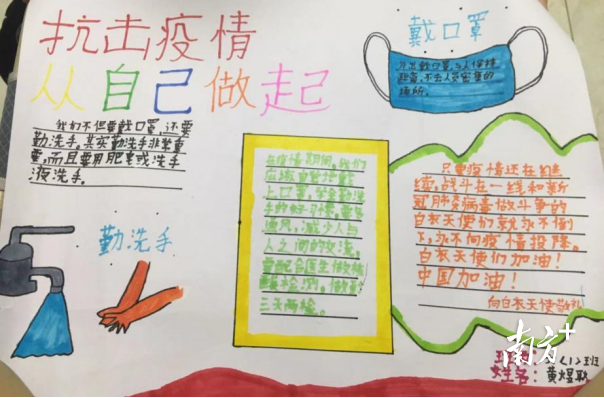 抗击疫情
从自己做起
戴口罩
外出戴口罩,与人保持
距离,不去人员密集的
场所。
我们不但要戴口罩,还要
勤洗手。其实勤洗手非常重
要,而且要用肥皂或洗手
液洗手。
勤洗手
在疫情期间,我们
应该自觉地戴
上口罩,养成勤洗
手的好习惯,要多
通风,减少人与
人之间的交流。
要配合医生做核
酸检测,做到
三天两检。
只要疫情还在继
续,战斗在一线和新
冠肺炎病毒做斗争的
白衣天使们就永不倒
下,永不向疫情投降。
白衣天使们加油!
中国加油!
向白衣天使敬礼
南方+
(1)班
姓名:黄煜